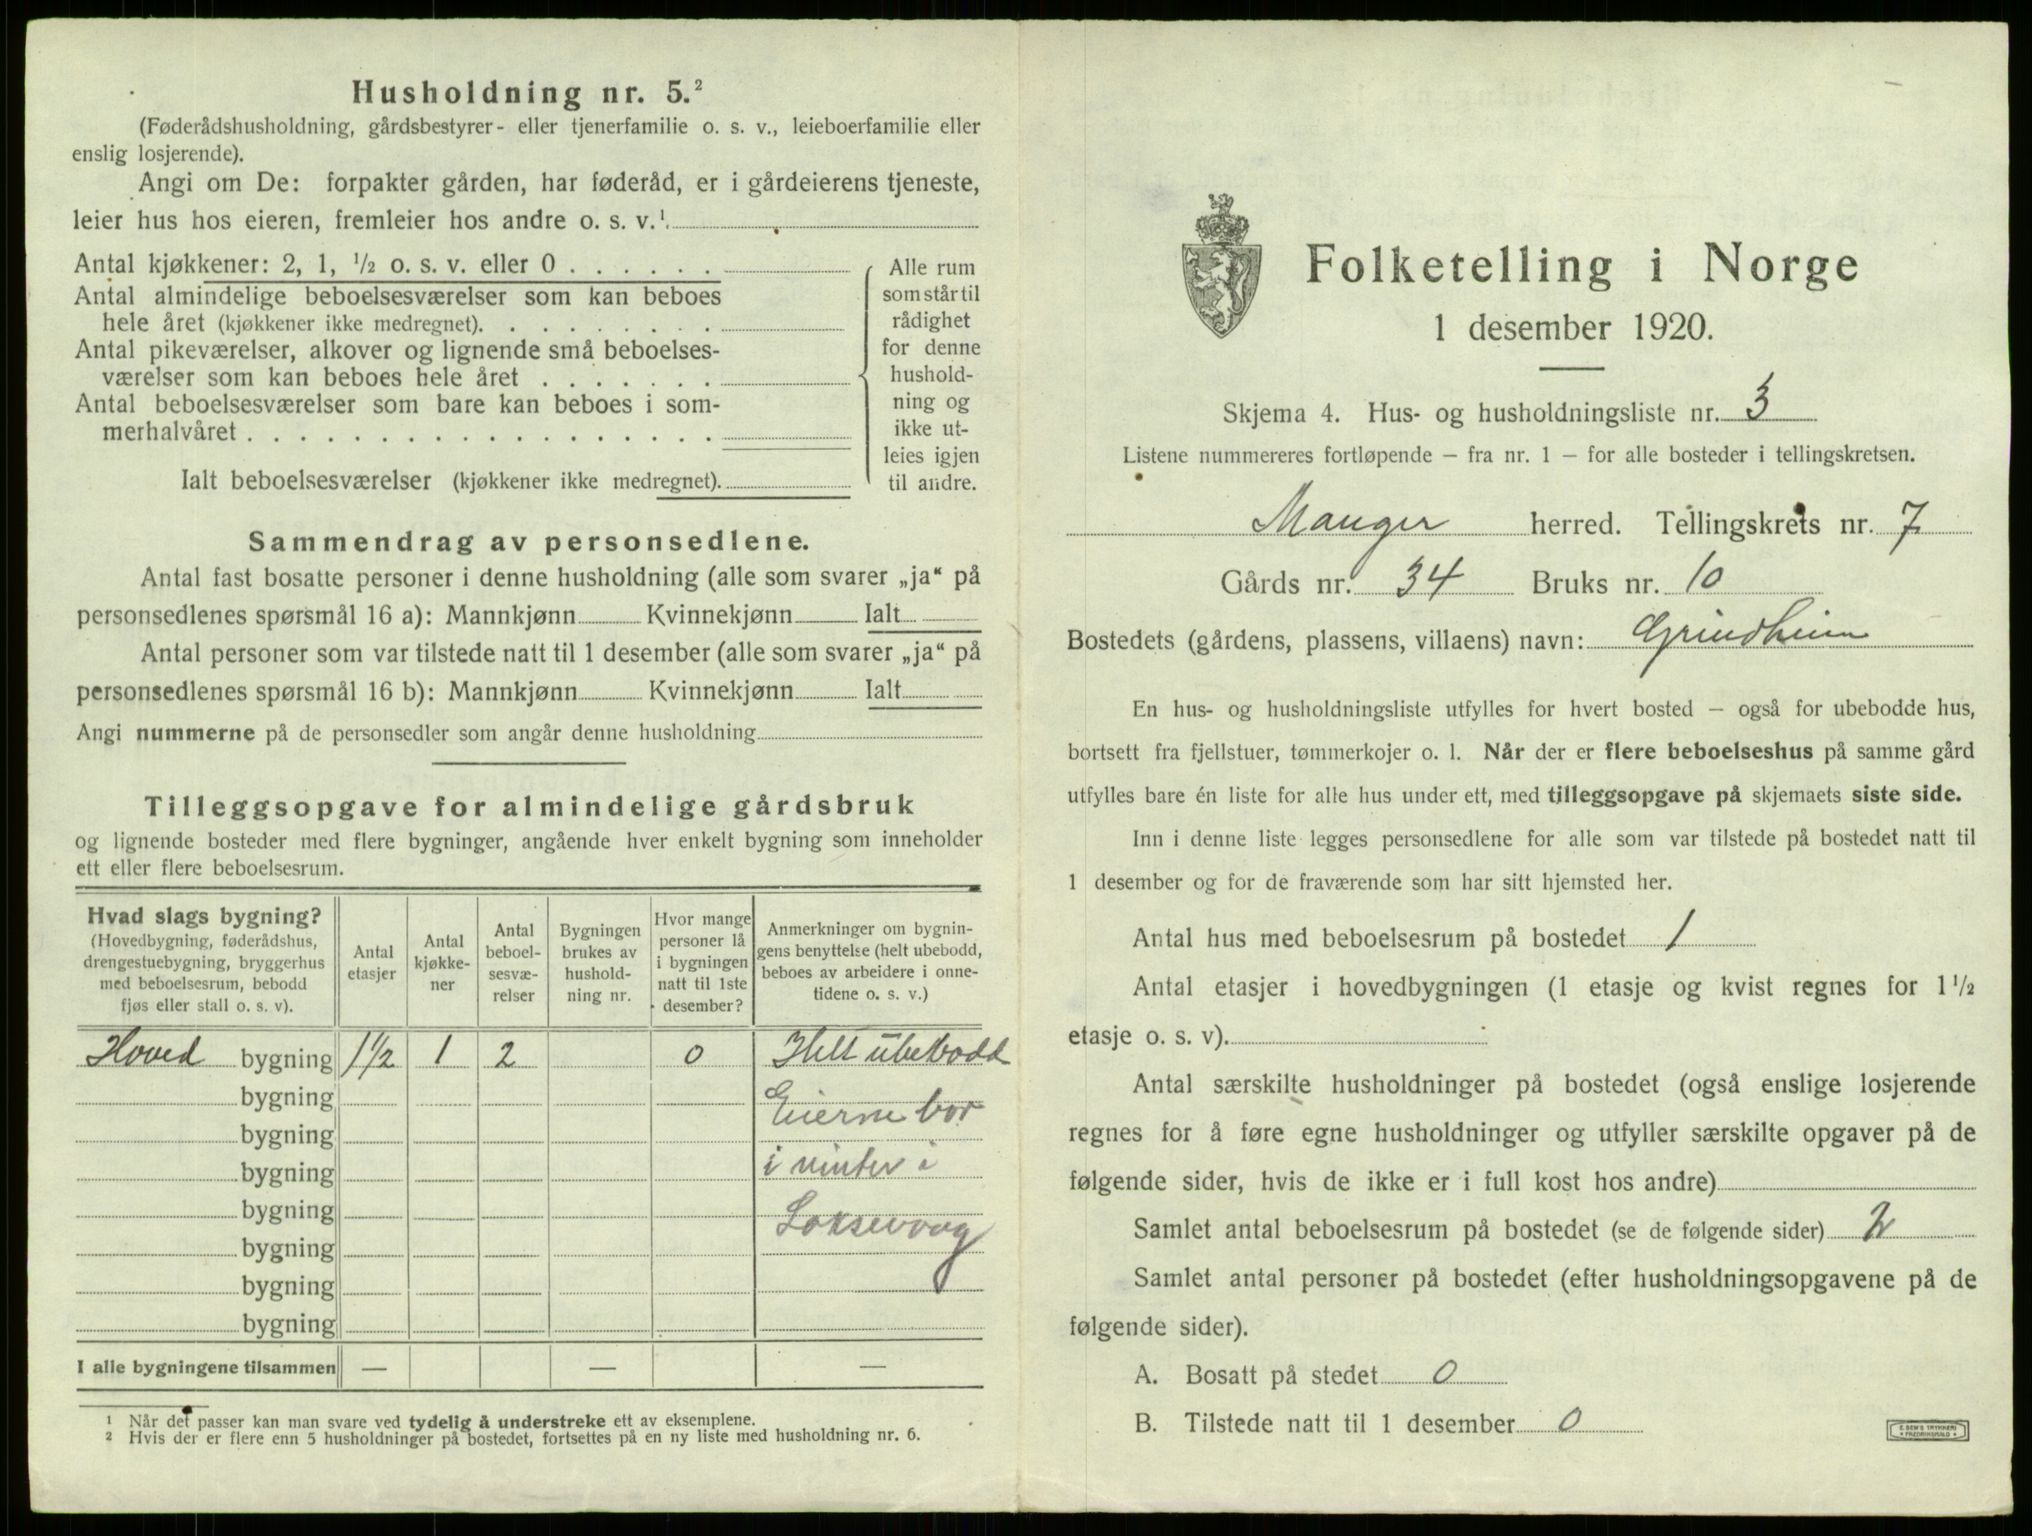 Husholdning nr. 5.²
(Føderådshusholdning, gårdsbestyrer- eller tjenerfamilie o. s. v., leieboerfamilie eller
enslig losjerende).
Angi om De: forpakter gården, har føderåd, er i gårdeierens tjeneste,
leier hus hos eieren, fremleier hos andre o. s. v.¹
Antal kjøkkener: 2, 1, ½ o. s. v. eller 0 . . . . . .
Antal almindelige beboelsesværelser som kan beboes
hele året (kjøkkener ikke medregnet). . . . . . . . .
Antal pikeværelser, alkover og lignende små beboelses-
værelser som kan beboes hele året . . . . . . .
Antal beboelsesværelser som bare kan beboes i som-
merhalvåret . . . . . . . . . . . . . . . . . .
Ialt beboelsesværelser (kjøkkener ikke medregnet).
Alle rum
som står til
rådighet
for denne
hushold-
ning og
ikke ut-
leies igjen
til andre.
Sammendrag av personsedlene.
Antal fast bosatte personer i denne husholdning (alle som svarer „ja“ på
personsedlenes spørsmål 16 a): Mannkjønn Kvinnekjønn Ialt
Antal personer som var tilstede natt til 1 desember (alle som svarer „ja“ på
personsedlenes spørsmål 16 b): Mannkjønn Kvinnekjønn Ialt
Angi nummerne på de personsedler som angår denne husholdning
Tilleggsopgave for almindelige gårdsbruk
og lignende bosteder med flere bygninger, angående hver enkelt bygning som inneholder
ett eller flere beboelsesrum.
Hvad slags bygning?
(Hovedbygning, føderådshus,
drengestuebygning, bryggerhus
med beboelsesrum, bebodd
fjøs eller stall o. s. v).
Antal
etasjer
Antal
kjøkke-
ner
Antal
beboel-
sesvæ-
relser
Bygningen
brukes av
hushold-
ning nr.
Hvor mange
personer lå
i bygningen
natt til 1ste
desember?
Anmerkninger om bygnin-
gens benyttelse (helt ubebodd,
beboes av arbeidere i onne-
tidene o. s. v.)
Hoved bygning 1½ 1 2 0 Helt ubebodd
bygning Eierne bor
bygning
bygning i vinter i
bygning Laksevaag
bygning
bygning
bygning
I alle bygningene tilsammen — — —
¹ Når det passer kan man svare ved tydelig å understreke ett av eksemplene.
² Hvis der er flere enn 5 husholdninger på bostedet, fortsettes på en ny liste med husholdning nr. 6.
Folketelling i Norge
1 desember 1920.
Skjema 4. Hus- og husholdningsliste nr. 3
Listene nummereres fortløpende – fra nr. 1 – for alle bosteder i tellingskretsen.
Manger herred. Tellingskrets nr. 7
Gårds nr. 34 Bruks nr. 10
Bostedets (gårdens, plassens, villaens) navn: Grindheim
En hus- og husholdningsliste utfylles for hvert bosted – også for ubebodde hus,
bortsett fra fjellstuer, tømmerkojer o. l. Når der er flere beboelseshus på samme gård
utfylles bare én liste for alle hus under ett, med tilleggsopgave på skjemaets siste side.
Inn i denne liste legges personsedlene for alle som var tilstede på bostedet natt til
1 desember og for de fraværende som har sitt hjemsted her.
Antal hus med beboelsesrum på bostedet 1
Antal etasjer i hovedbygningen (1 etasje og kvist regnes for 1½
etasje o. s. v).
Antal særskilte husholdninger på bostedet (også enslige losjerende
regnes for å føre egne husholdninger og utfyller særskilte opgaver på de
følgende sider, hvis de ikke er i full kost hos andre)
Samlet antal beboelsesrum på bostedet (se de følgende sider) 2
Samlet antal personer på bostedet (efter husholdningsopgavene på de
følgende sider).
A. Bosatt på stedet 0
B. Tilstede natt til 1 desember 0